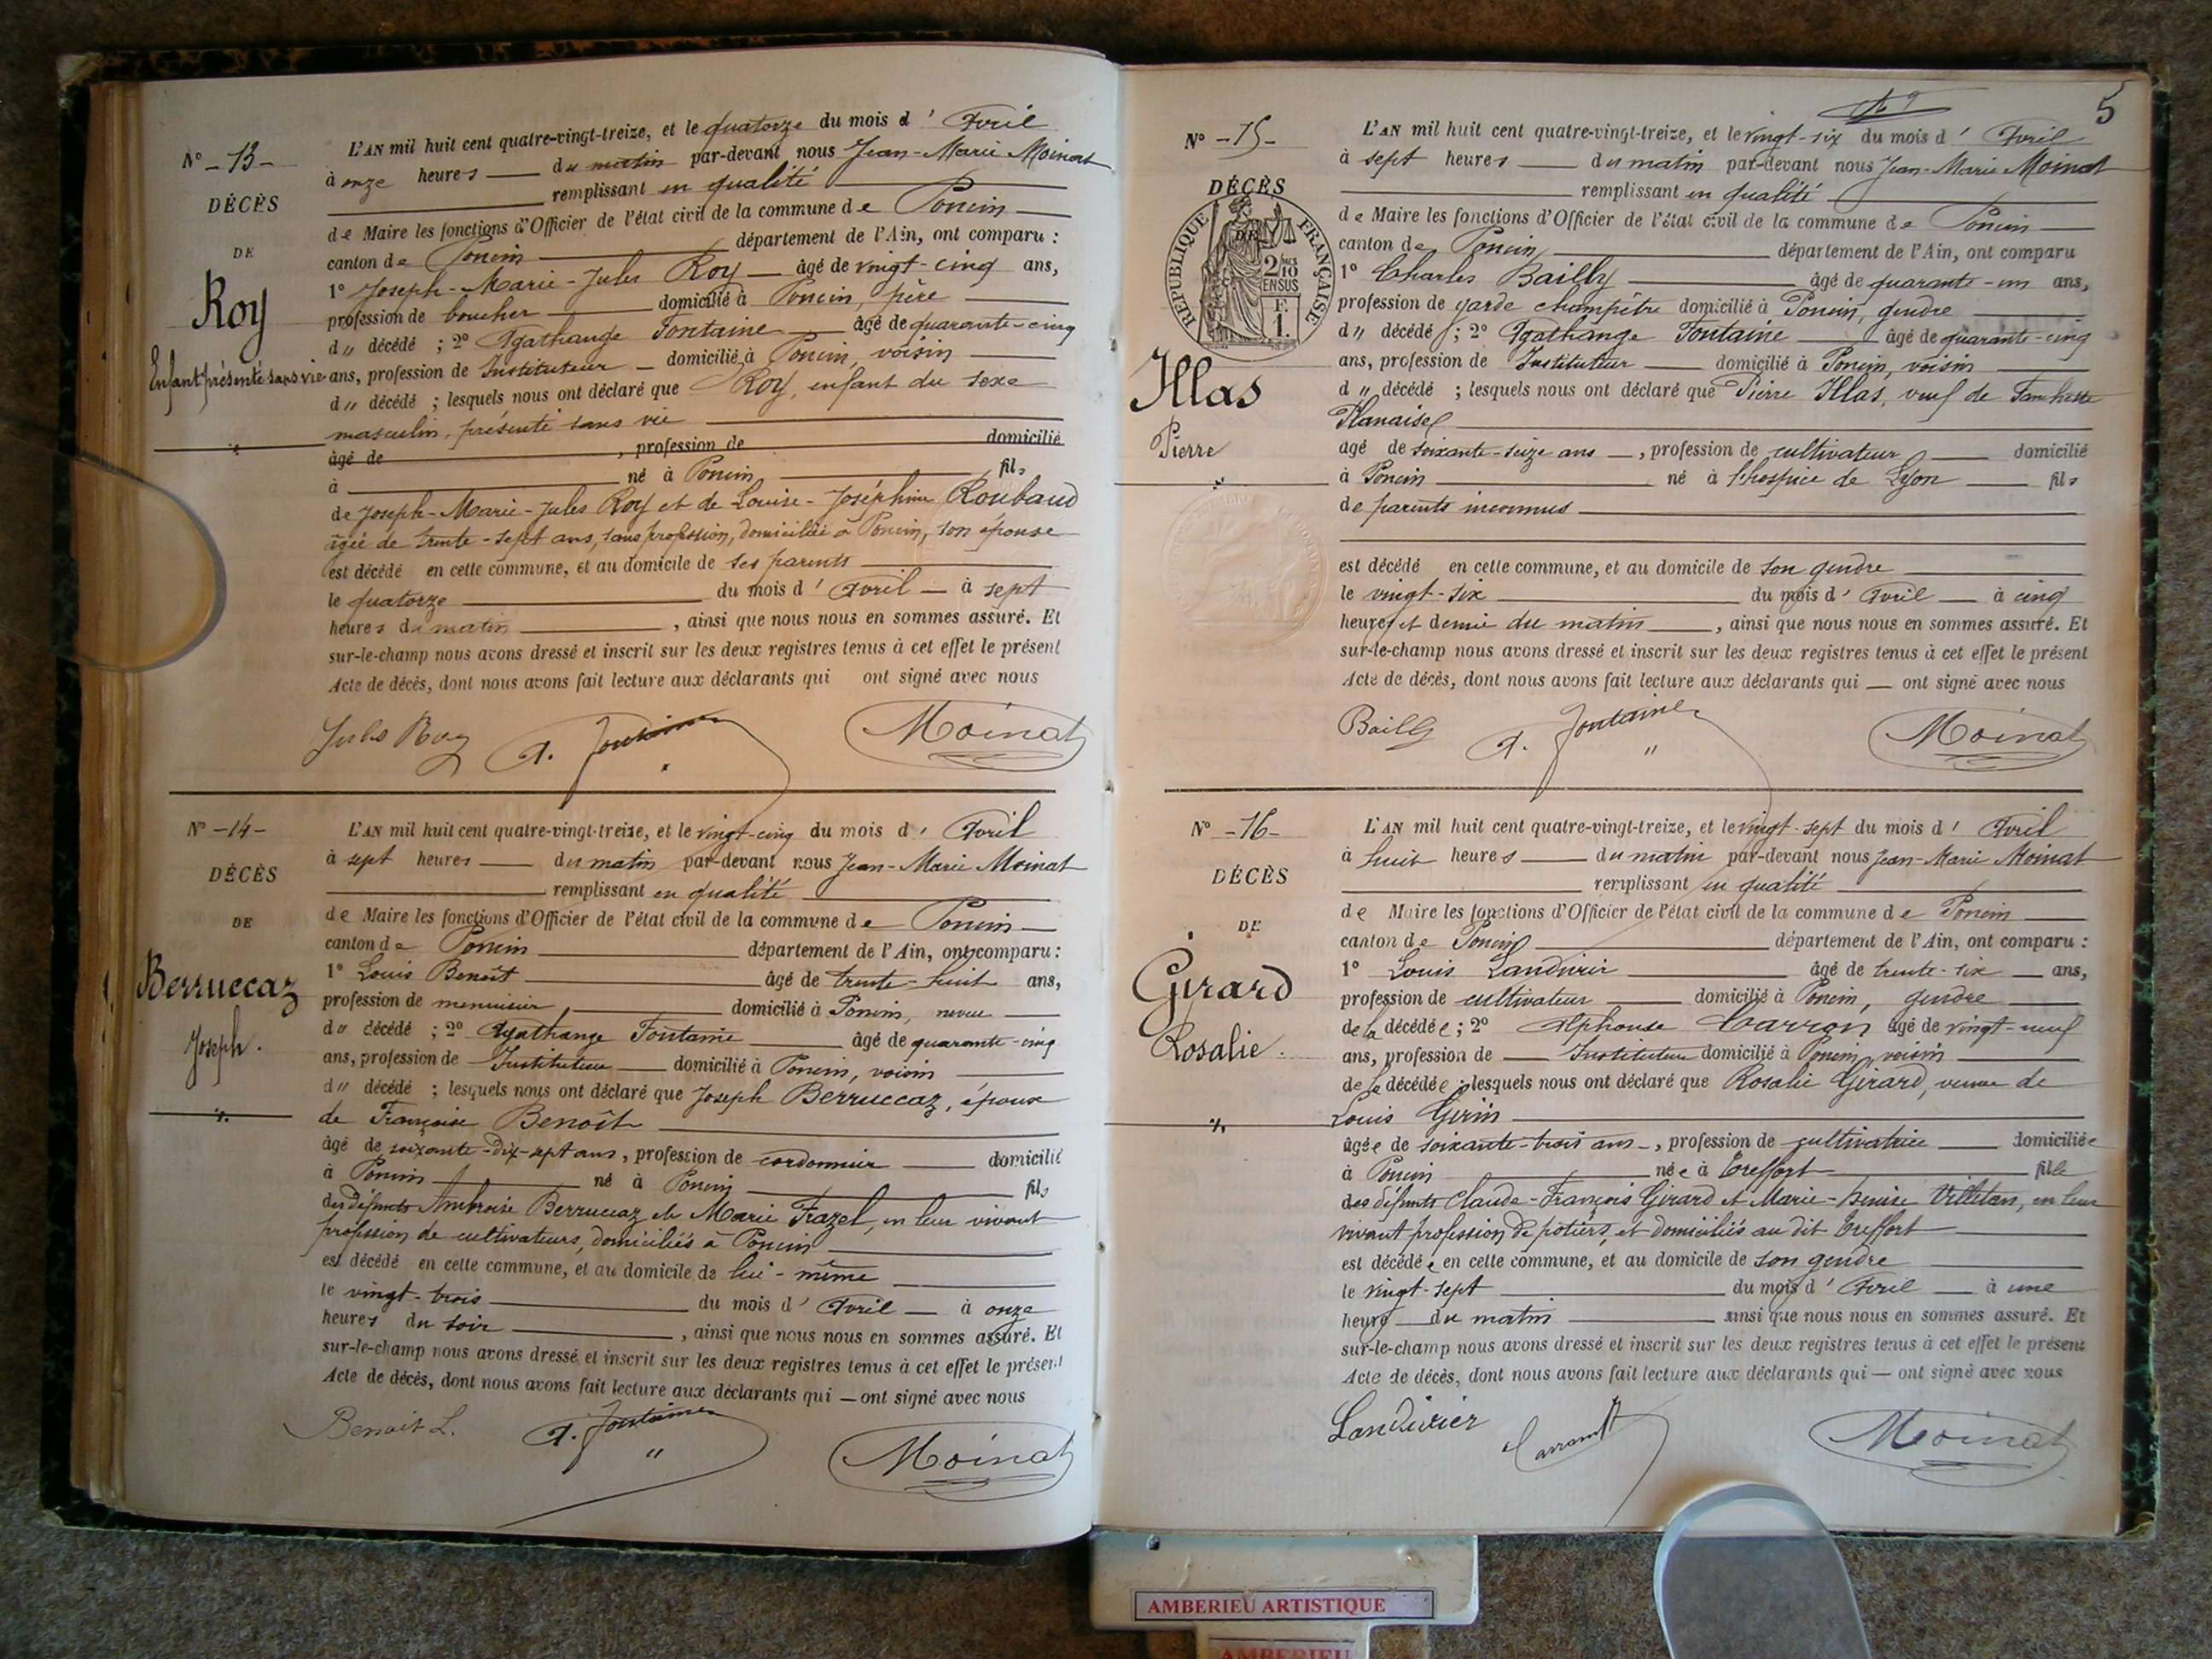 N° -13-
DÉCÈS
DE
Roy
Enfant présenté sans vie
L'AN mil huit cent quatre-vingt-treize, et le quatorze du mois d' Avril
à onze heures du matin par-devant nous Jean-Marie Moinat
remplissant en qualité
de Maire les fonctions d'Officier de l'état civil de la commune de Poncin
canton de Poncin département de l'Ain, ont comparu :
1° Joseph-Marie-Jules Roy âgé de vingt-cinq ans,
profession de boucher domicilié à Poncin, père
d" décédé ; 2° Agathange Fontaine âgé de quarante-cinq
ans, profession de Instituteur domicilié à Poncin, voisin
d" décédé ; lesquels nous ont déclaré que Roy, enfant du sexe
masculin, présenté sans vie
âgé de , profession de domicilié
à né à Poncin fils
de Joseph-Marie-Jules Roy et de Louise-Joséphine Roubaud
âgée de trente-sept ans, sans profession, domiciliée à Poncin, son épouse
est décédé en cette commune, et au domicile de ses parents
le quatorze du mois d' Avril à sept
heures du matin , ainsi que nous nous en sommes assuré. Et
sur-le-champ nous avons dressé et inscrit sur les deux registres tenus à cet effet le présent
Acte de décès, dont nous avons fait lecture aux déclarants qui ont signé avec nous
Jules Roy A. Fontaine Moinat
N° -14-
DÉCÈS
DE
Berruccaz
Joseph.
L'AN mil huit cent quatre-vingt-treize, et le vingt-cinq du mois d' Avril
à sept heures du matin par-devant nous Jean-Marie Moinat
remplissant en qualité
de Maire les fonctions d'Officier de l'état civil de la commune de Poncin
canton de Poncin département de l'Ain, ont comparu :
1° Louis Benoît âgé de trente-huit ans,
profession de menuisier domicilié à Poncin, neveu
d" décédé ; 2° Agathange Fontaine âgé de quarante-cinq
ans, profession de Instituteur domicilié à Poncin, voisin
d" décédé ; lesquels nous ont déclaré que Joseph Berruccaz, époux
de Françoise Benoît
âgé de soixante-dix-sept ans, profession de cordonnier domicilié
à Poncin né à Poncin fils
des défunts Ambroise Berruccaz et Marie Frazel, en leur vivant
profession de cultivateurs, domiciliés à Poncin
est décédé en cette commune, et au domicile de lui-même
le vingt-trois du mois d' Avril à onze
heures du soir , ainsi que nous nous en sommes assuré. Et
sur-le-champ nous avons dressé et inscrit sur les deux registres tenus à cet effet le présent
Acte de décès, dont nous avons fait lecture aux déclarants qui — ont signé avec nous
Benoit L. A. Fontaine Moinat
5
N° -15-
DÉCÈS
DE
RÉPUBLIQUE FRANÇAISE
2/10 EN SUS
F. 1.
Illas
Pierre
L'AN mil huit cent quatre-vingt-treize, et le vingt-six du mois d' Avril
à sept heures du matin par-devant nous Jean-Marie Moinat
remplissant en qualité
de Maire les fonctions d'Officier de l'état civil de la commune de Poncin
canton de Poncin département de l'Ain, ont comparu
1° Charles Bailly âgé de quarante-un ans,
profession de garde champêtre domicilié à Poncin, gendre
d" décédé ; 2° Agathange Fontaine âgé de quarante-cinq
ans, profession de Instituteur domicilié à Poncin, voisin
d" décédé ; lesquels nous ont déclaré que Pierre Illas, veuf de
âgé de soixante-seize ans , profession de cultivateur domicilié
à Poncin né à l'hospice de Lyon fils
de parents inconnus
est décédé en cette commune, et au domicile de son gendre
le vingt-six du mois d' Avril à cinq
heures et demie du matin , ainsi que nous nous en sommes assuré. Et
sur-le-champ nous avons dressé et inscrit sur les deux registres tenus à cet effet le présent
Acte de décès, dont nous avons fait lecture aux déclarants qui — ont signé avec nous
Bailly A. Fontaine Moinat
N° -16-
DÉCÈS
DE
Girard
Rosalie.
L'AN mil huit cent quatre-vingt-treize, et le vingt-sept du mois d' Avril
à huit heures du matin par-devant nous Jean-Marie Moinat
remplissant en qualité
de Maire les fonctions d'Officier de l'état civil de la commune de Poncin
canton de Poncin département de l'Ain, ont comparu :
1° Louis Landivier âgé de trente-six ans,
profession de cultivateur domicilié à Poncin, gendre
de la décédée ; 2° Alphonse Carron âgé de vingt-neuf
ans, profession de Instituteur domicilié à Poncin, voisin
de la décédée ; lesquels nous ont déclaré que Rosalie Girard, veuve de
Louis Girin
âgée de soixante-trois ans , profession de cultivatrice domiciliée
à Poncin née à Treffort fille
des défunts Claude-François Girard et Marie-Denise Villetan, en leur
vivant profession de potiers, et domiciliés au dit Treffort
est décédée en cette commune, et au domicile de son gendre
le vingt-sept du mois d' Avril à une
heure du matin ainsi que nous nous en sommes assuré. Et
sur-le-champ nous avons dressé et inscrit sur les deux registres tenus à cet effet le présent
Acte de décès, dont nous avons fait lecture aux déclarants qui — ont signé avec nous
Landivier Carron A Moinat
AMBERIEU ARTISTIQUE
AMBERIEU